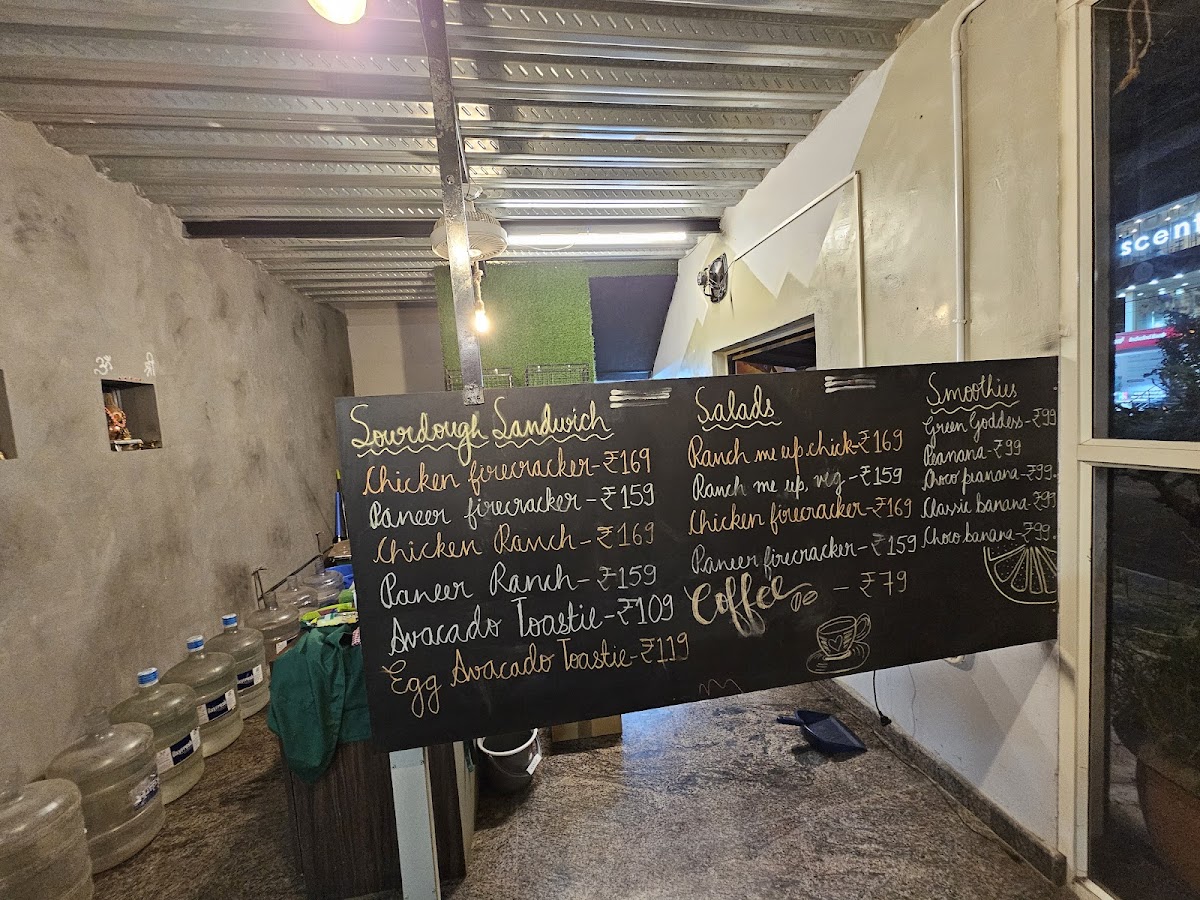 ॐ श्री
scent
Sourdough Sandwich
Chicken firecracker-₹169
Paneer firecracker-₹159
Chicken Ranch-₹169
Paneer Ranch-₹159
Avacado Toastie-₹109
Egg Avacado Toastie-₹119
Salads
Ranch me up chick-₹169
Ranch me up, veg-₹159
Chicken firecracker-₹169
Paneer firecracker-₹159
Coffee - ₹79
Smoothies
Green Goddess-₹99
Peanana-₹99
Choco peanana-₹99
Classic banana-₹99
Choco banana-₹99